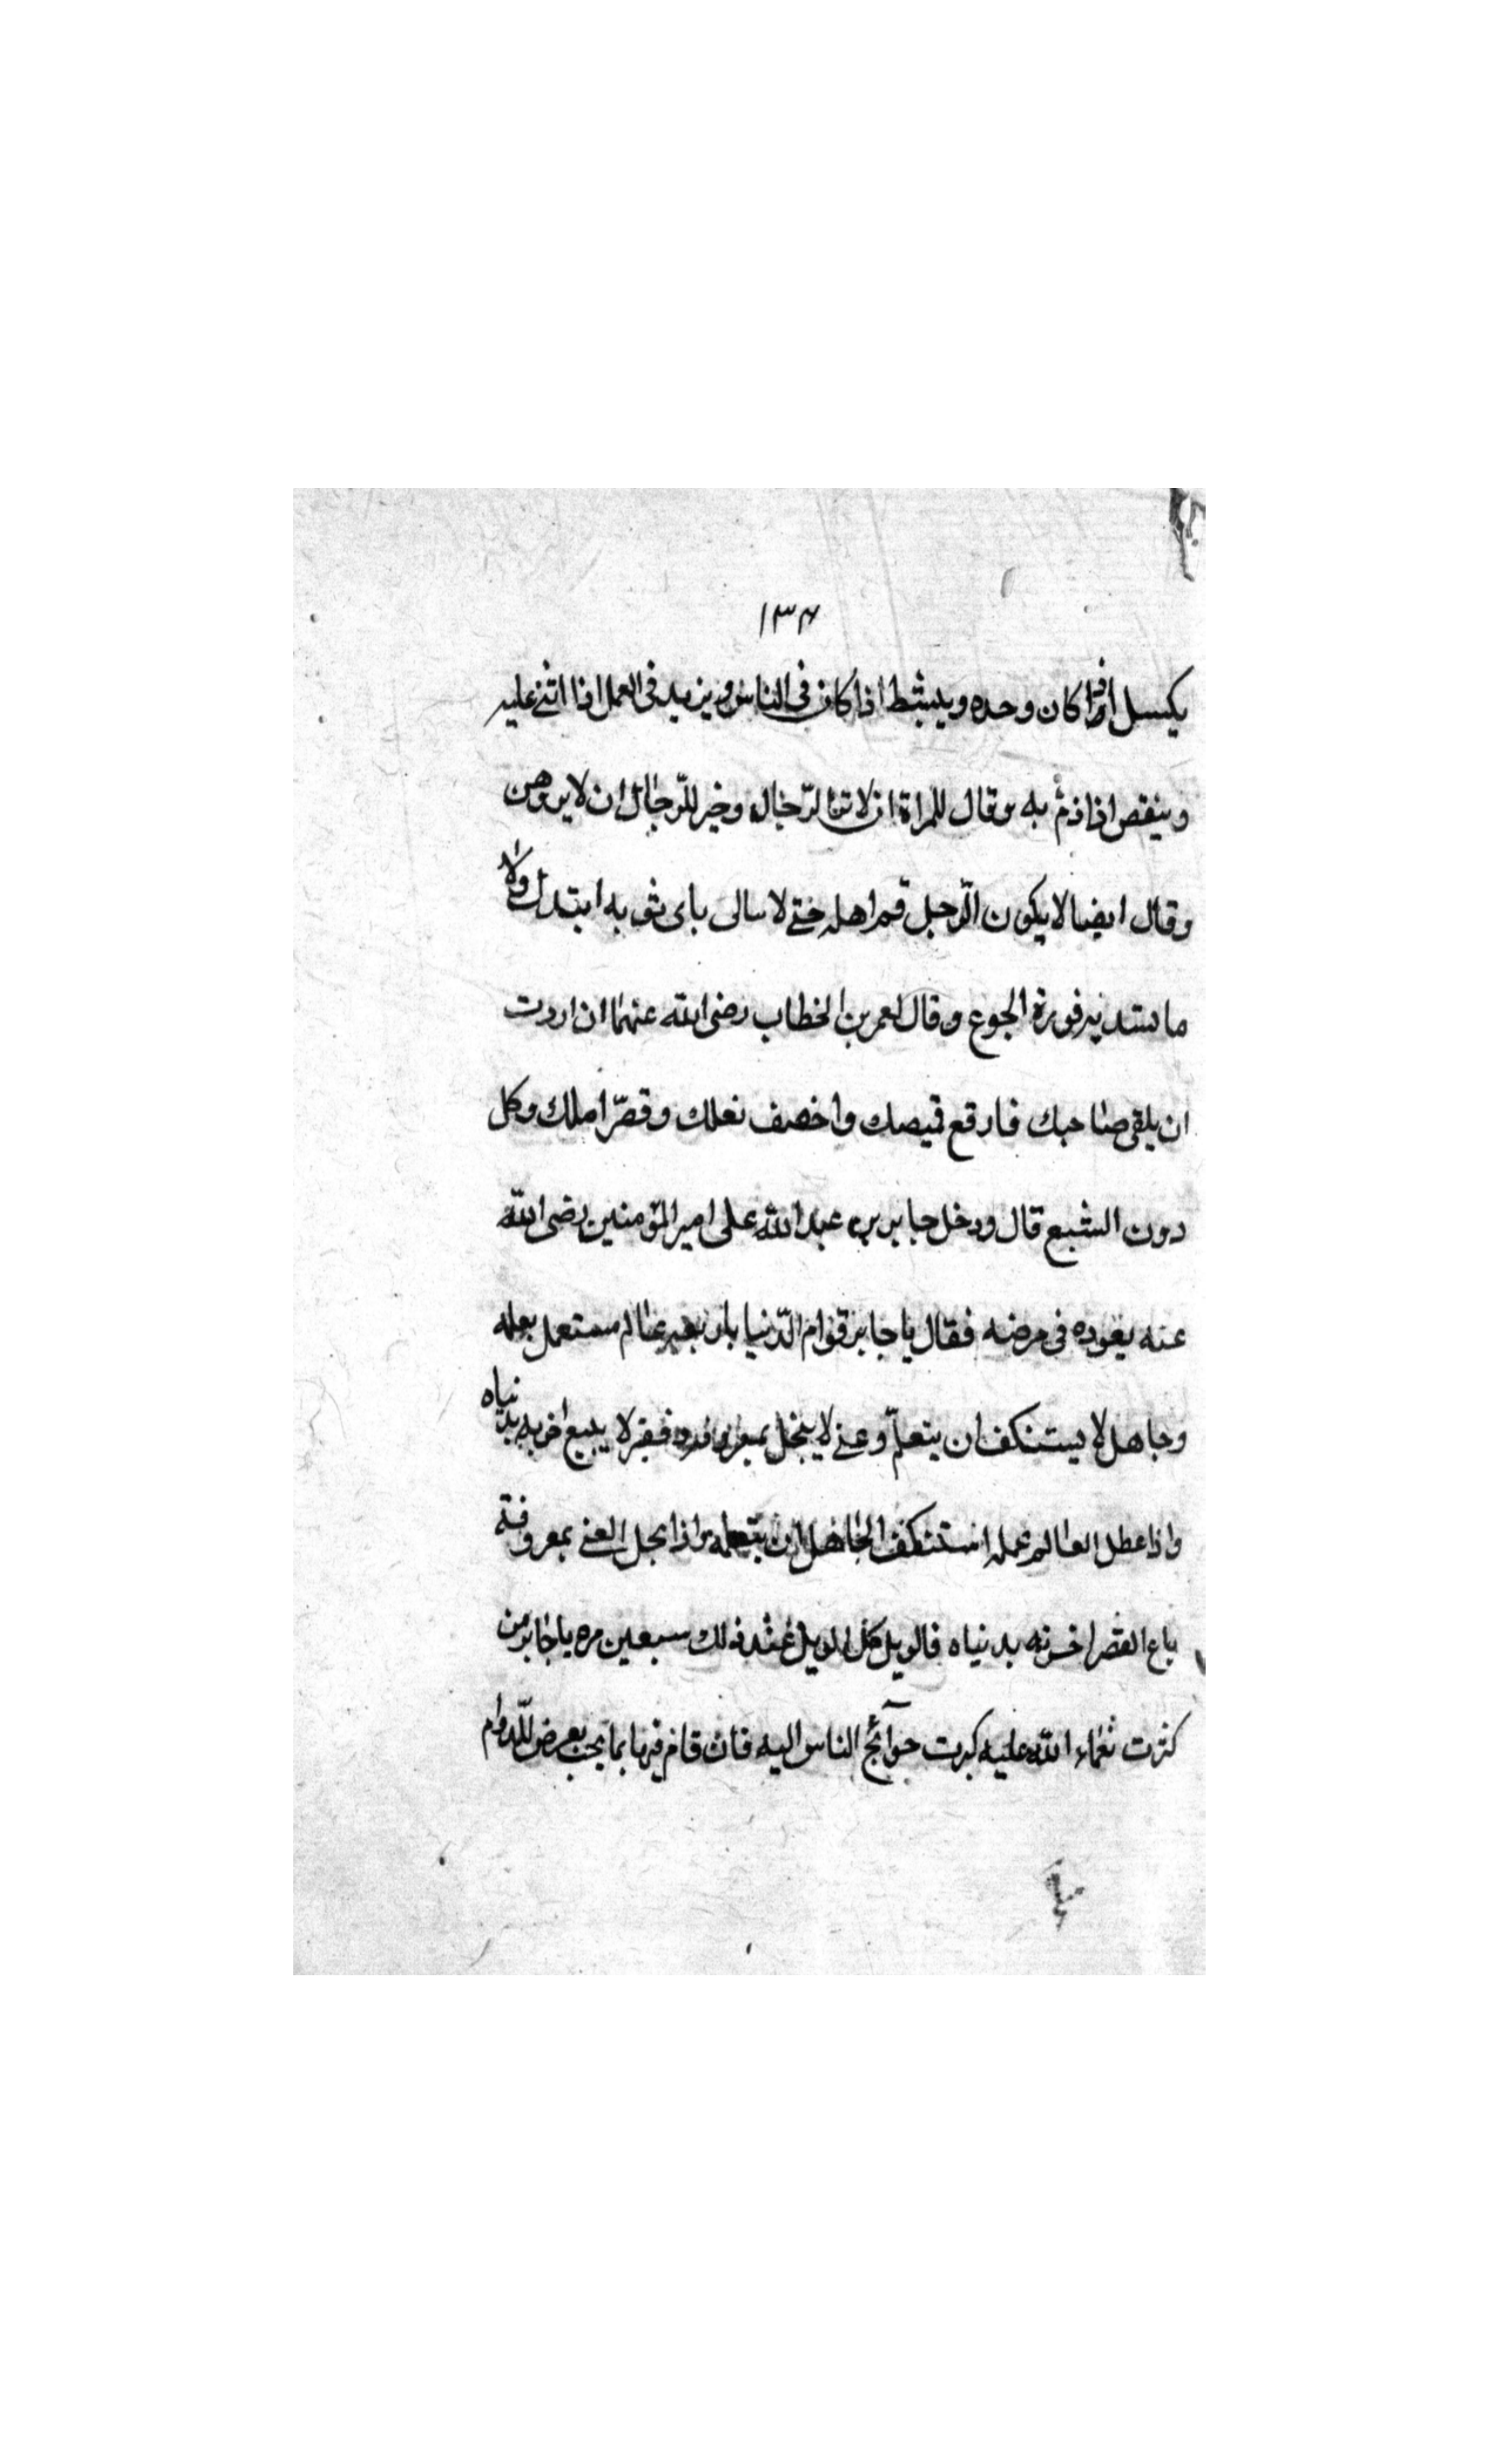 ١٣٤
يكسل اذا كان وحده وينشط اذا كان فى الناس ويزيد فى العمل اذا اثنى عليه
وينقص اذا ذم به وقال للمراة ان لا الرجال وخير للرجال ان لا يروهن
وقال ايضا لا يكون الرجل قيم اهله حتى لا سالى باى ثوبيه ابتدل ولا
ما فورة الجوع وقال لعمر بن الخطاب رضى الله عنهما ان اردت
ان يلقى صاحبك فارقع قميصك واخصف نعلك وقصّر املك وكل
دون الشبع قال ودخل جابر بن عبد الله على امير المؤمنين رضى الله
عنه يعوده فى مرضه فقال يا جابر قوام الدّنيا باربعة عالم مستعمل بعلمه
وجاهل لا يستنكف ان يتعلّم وغنى لا يبخل بمعروفه وفقير لا يبيع اخرته بدنياه
واذا عطل العالم علمه استنكف الجاهل ان يتعلمه واذا بخل الغنى بمعروفه
باع الفقير اخرته بدنياه فالويل كل الويل عند ذلك سبعين مره يا جابر من
كثرت نعماء الله عليه كبرت حوآئج الناس اليه فان قام فيها بما يجب بعرض للدوام